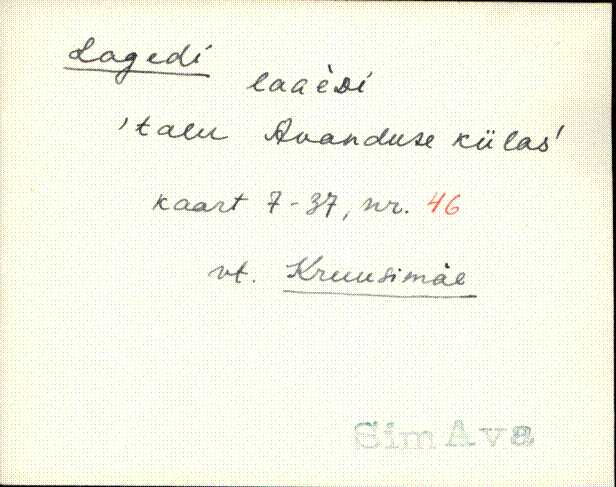 Lagedi
laaèDi
'talu Avanduse külas'
kaart 7-37, nr. 46
vt. Kruusimäe
Sim Ava